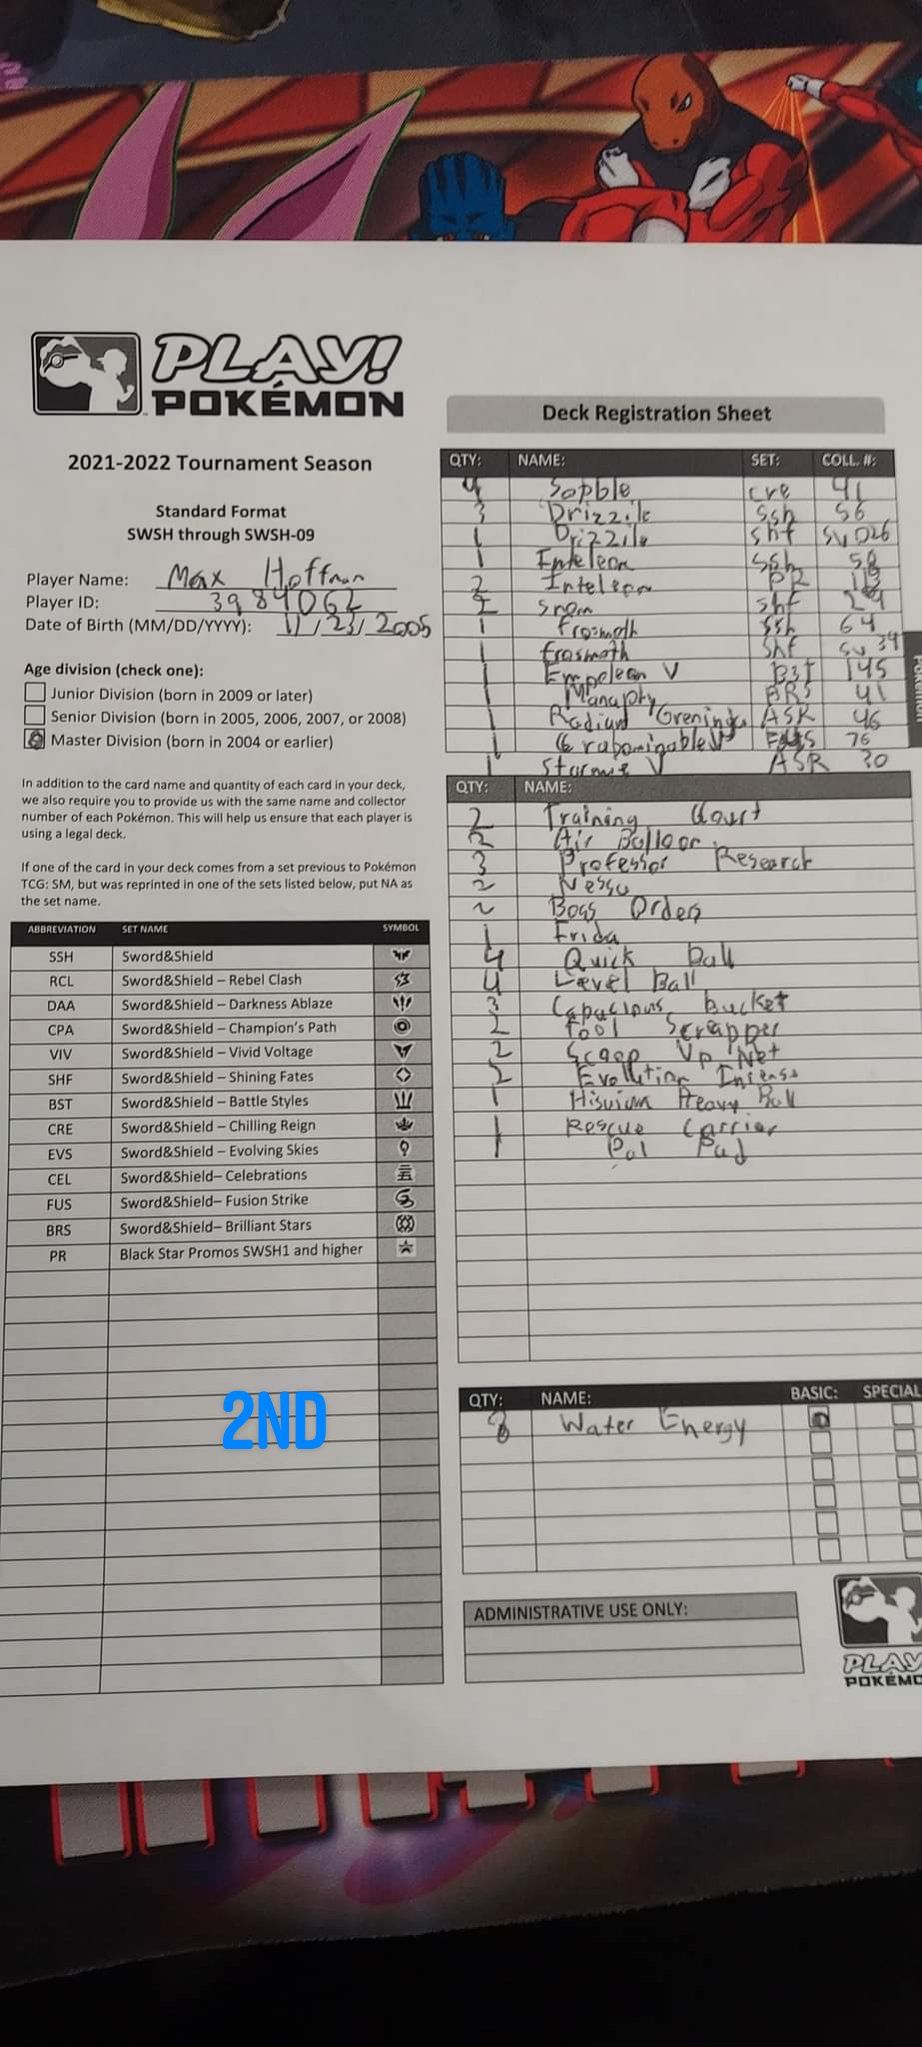 PLAY!
POKÉMON
2021-2022 Tournament Season
Standard Format
SWSH through SWSH-09
Player Name: Max Hoffman
Player ID: 3984062
Date of Birth (MM/DD/YYYY): 11/23/2005
Age division (check one):
Junior Division (born in 2009 or later)
Senior Division (born in 2005, 2006, 2007, or 2008)
Master Division (born in 2004 or earlier)
In addition to the card name and quantity of each card in your deck,
we also require you to provide us with the same name and collector
number of each Pokémon. This will help us ensure that each player is
using a legal deck.
If one of the card in your deck comes from a set previous to Pokémon
TCG: SM, but was reprinted in one of the sets listed below, put NA as
the set name.
ABBREVIATION SET NAME SYMBOL
SSH Sword&Shield
RCL Sword&Shield – Rebel Clash
DAA Sword&Shield – Darkness Ablaze
CPA Sword&Shield – Champion's Path
VIV Sword&Shield – Vivid Voltage
SHF Sword&Shield – Shining Fates
BST Sword&Shield – Battle Styles
CRE Sword&Shield – Chilling Reign
EVS Sword&Shield – Evolving Skies
CEL Sword&Shield– Celebrations
FUS Sword&Shield– Fusion Strike
BRS Sword&Shield– Brilliant Stars
PR Black Star Promos SWSH1 and higher
2ND
Deck Registration Sheet
QTY: NAME: SET: COLL. #:
4 Sobble cre 41
3 Drizzile ssh 56
1 Drizzile shf sv026
1 Inteleon ssh 58
2 Inteleon PR
Snom shf
1 Frosmoth ssh 64
1 frosmoth shf sv 34
1 Empoleon V BST 145
1 Manaphy BRS 41
1 Radiant Greninja ASR 46
1 76
1 Starmie V ASR 30
QTY: NAME:
2 Training Court
2 Air Balloon
3 Professor Research
2 Nessa
2 Boss Orders
1
4 Quick Ball
4 Level Ball
3 Capacious Bucket
2 Tool Scrapper
2 Scoop Up Net
2 Evolution Incense
1 Hisuian Heavy Ball
1 Rescue Carrier
1 Pal Pad
QTY: NAME: BASIC: SPECIAL
8 Water Energy
ADMINISTRATIVE USE ONLY:
PLAY
POKÉMO